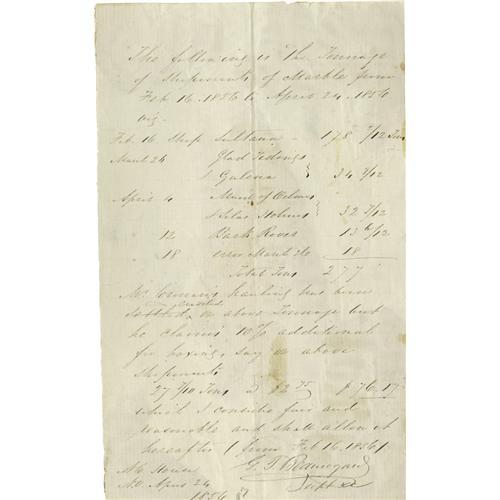 The following is the Tonnage
of Shipments of Marble from
Feb 16. 1856 to April 24. 1856
viz.
Feb. 16 Ship Sultana - 178 7/12 Tons
March 24 " Glad Tidings
" Galena } 34 7/12
April 4 Maid of Orleans
" Silas Holmes } 32 7/12
" 12 Bark Rover 13 6/12
" 18 error March 26 18
Total Tons 277
Mr. hauling has been
on above Tonnage but
he claims 10% additional
for boxing, say on above
shipments
27 7/10 Tons @ $2 75 $76.17
which I consider fair and
reasonable and shall allow it
hereafter (from Feb 16. 1856)
N.C. House G. T. Beauregard
N.O. April 24 Supt &c
1856